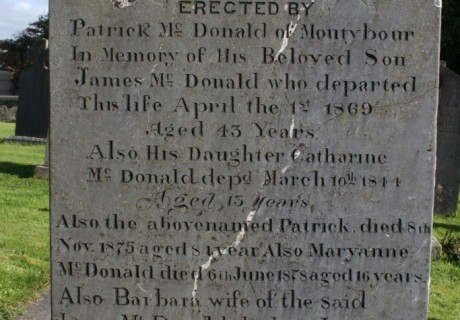 ERECTED BY
Patrick Mc Donald of Moutybour
In Memory of His Beloved Son
James Mc Donald who departed
This life April the 1st 1869
Aged 43 Years.
Also His Daughter Catharine
Mc Donald depd March 10th 1844
Aged 15 years,
Also the abovenamed Patrick died 8th
Nov. 1875 aged 84 year Also Maryanne
Mc Donald died 6th June 1878 aged 16 years.
Also Barbara wife of the said
James Mc Donald